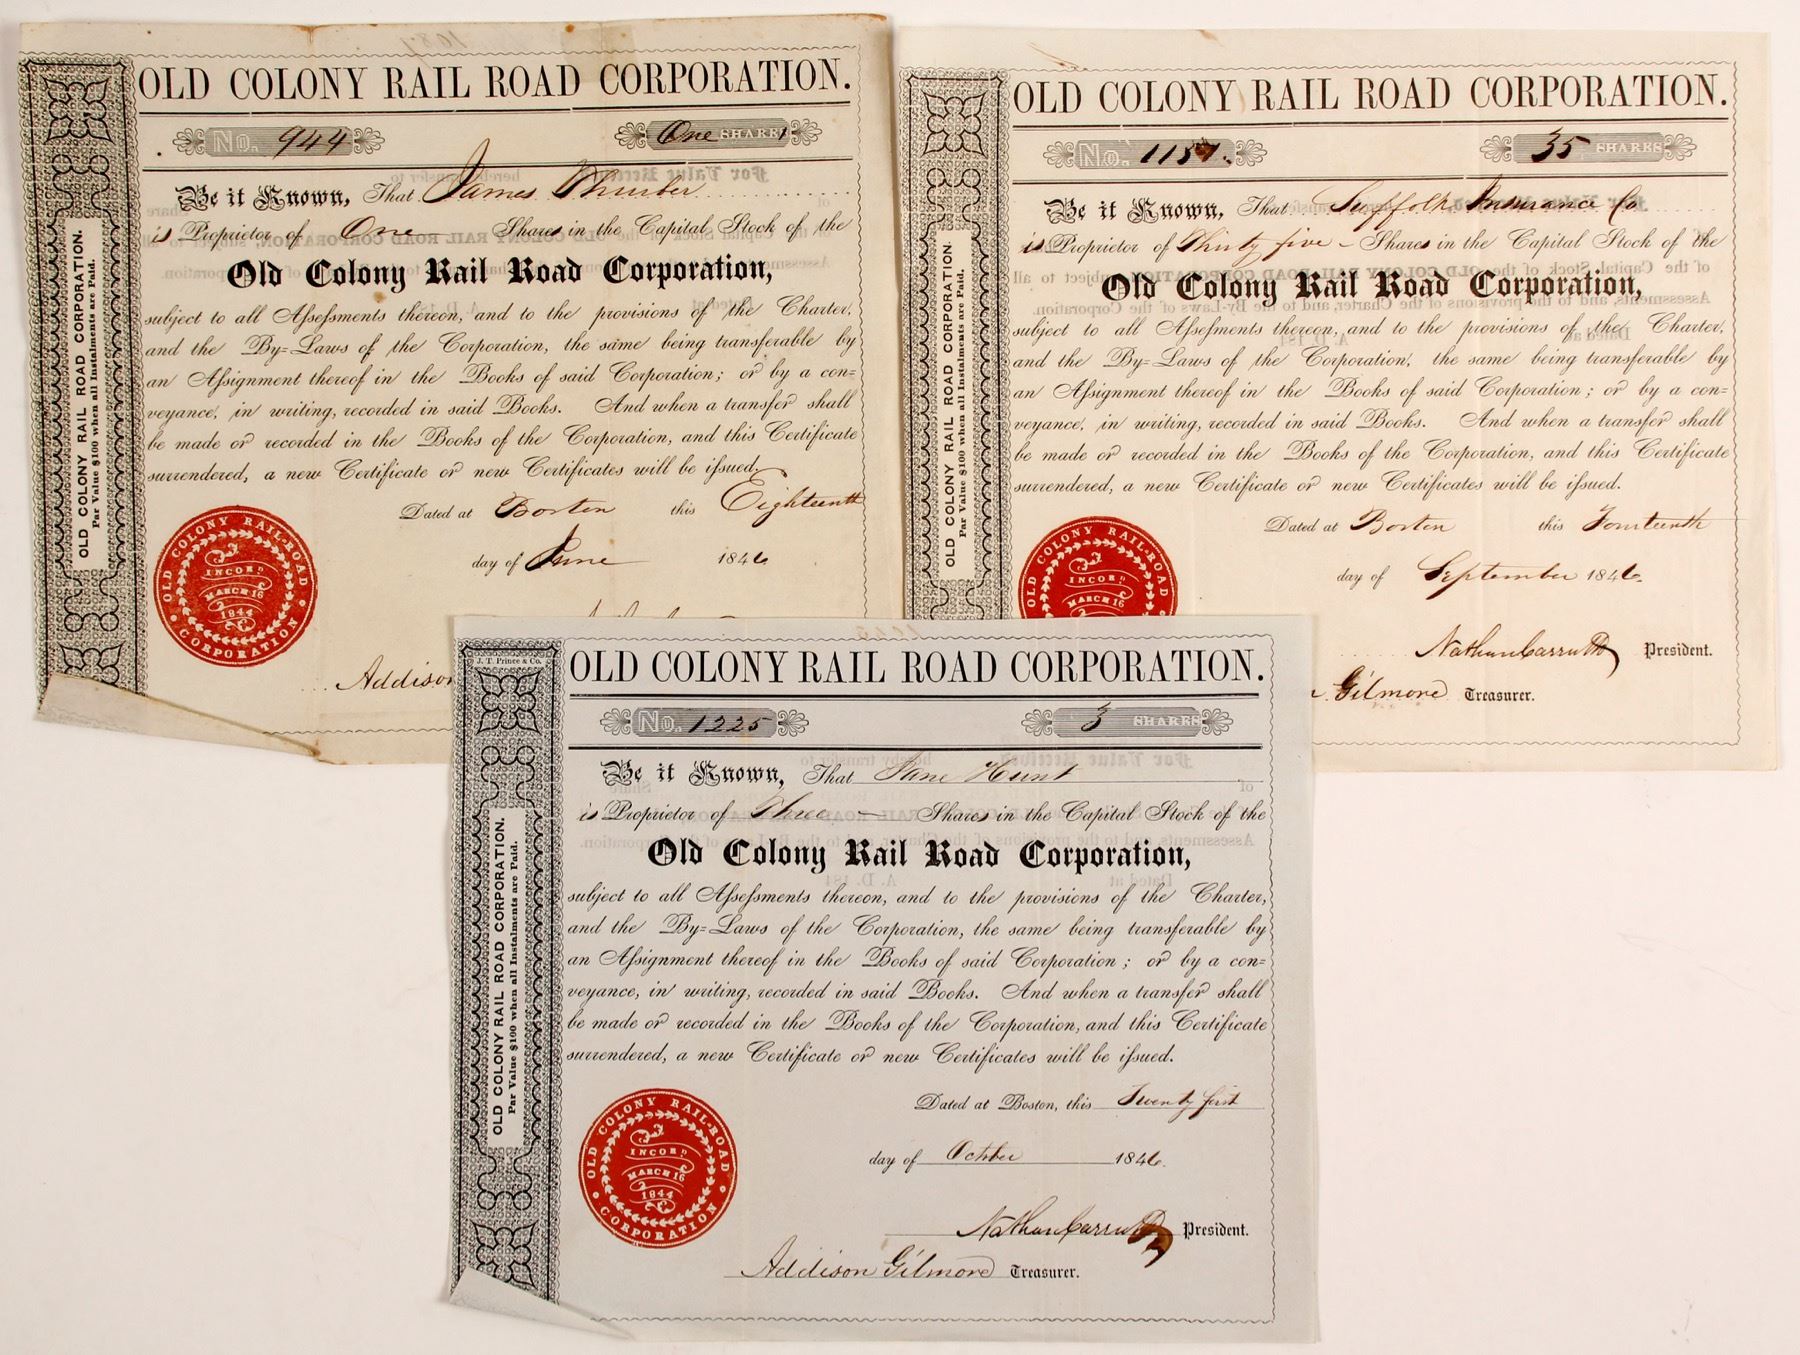 OLD COLONY RAIL ROAD CORPORATION.
No. 944 One SHARE
Be it Known, That James Thurber
is Proprietor of One Shares in the Capital Stock of the
Old Colony Rail Road Corporation,
subject to all Assessments thereon, and to the provisions of the Charter,
and the By-Laws of the Corporation, the same being transferable by
an Assignment thereof in the Books of said Corporation; or by a con-
veyance, in writing, recorded in said Books. And when a transfer shall
be made or recorded in the Books of the Corporation, and this Certificate
surrendered, a new Certificate or new Certificates will be issued.
Dated at Boston this Eighteenth
day of June 1846
Addison
OLD COLONY RAIL ROAD CORPORATION.
Par Value $100 when all Instalments are Paid.
OLD COLONY RAIL-ROAD
INCORD
MARCH 16
1844
CORPORATION
OLD COLONY RAIL ROAD CORPORATION.
No. 1157. 35 SHARES
Be it Known, That Suffolk Insurance Co
is Proprietor of Thirty five Shares in the Capital Stock of the
Old Colony Rail Road Corporation,
subject to all Assessments thereon, and to the provisions of the Charter,
and the By-Laws of the Corporation, the same being transferable by
an Assignment thereof in the Books of said Corporation; or by a con-
veyance, in writing, recorded in said Books. And when a transfer shall
be made or recorded in the Books of the Corporation, and this Certificate
surrendered, a new Certificate or new Certificates will be issued.
Dated at Boston this Fourteenth
day of September 1846.
Nathan Carruth President.
Gilmore Treasurer.
OLD COLONY RAIL ROAD CORPORATION.
Par Value $100 when all Instalments are Paid.
OLD COLONY RAIL-ROAD
INCORD
MARCH 16
J. T. Prince & Co.
OLD COLONY RAIL ROAD CORPORATION.
No. 1225 3 SHARES
Be it Known, That Jane Hunt
is Proprietor of Three Shares in the Capital Stock of the
Old Colony Rail Road Corporation,
subject to all Assessments thereon, and to the provisions of the Charter,
and the By-Laws of the Corporation, the same being transferable by
an Assignment thereof in the Books of said Corporation; or by a con-
veyance, in writing, recorded in said Books. And when a transfer shall
be made or recorded in the Books of the Corporation, and this Certificate
surrendered, a new Certificate or new Certificates will be issued.
Dated at Boston, this Twenty first
day of October 1846.
Nathan Carruth President.
Addison Gilmore Treasurer.
OLD COLONY RAIL ROAD CORPORATION.
Par Value $100 when all Instalments are Paid.
OLD COLONY RAIL-ROAD
INCORD
MARCH 16
1844
CORPORATION